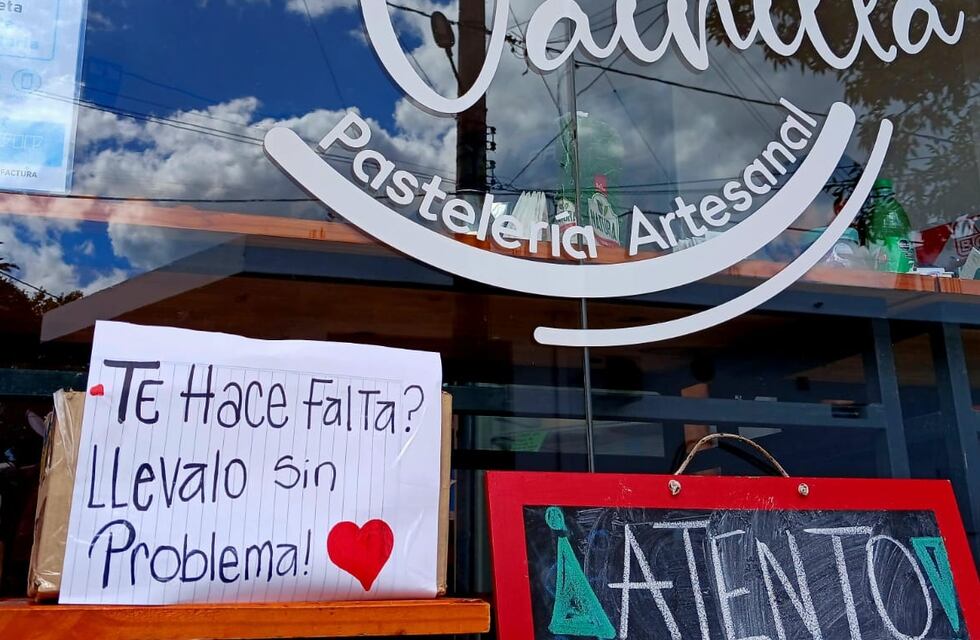 Vainilla
Pastelería Artesanal
FACTURA
TE Hace Falta?
LLevalo sin
Problema!
¡ATENTO
NATURA